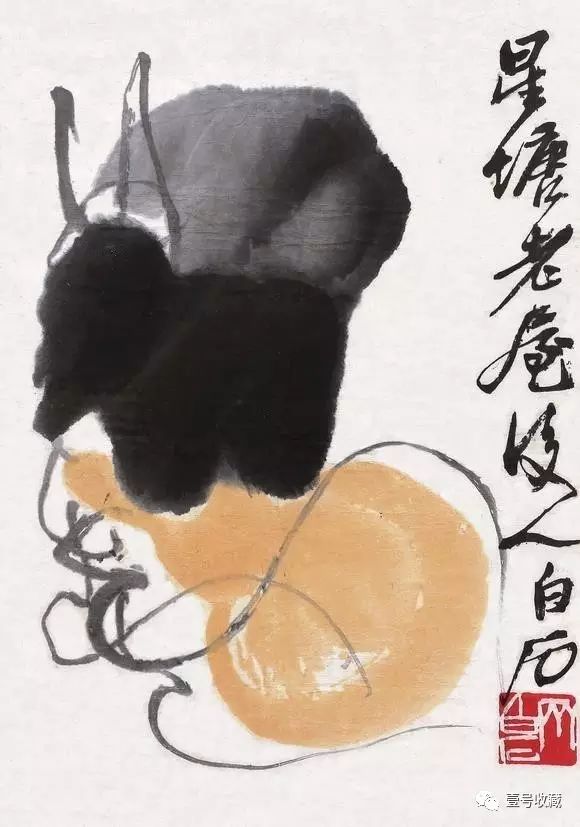 星塘老屋後人白石
壹号收藏